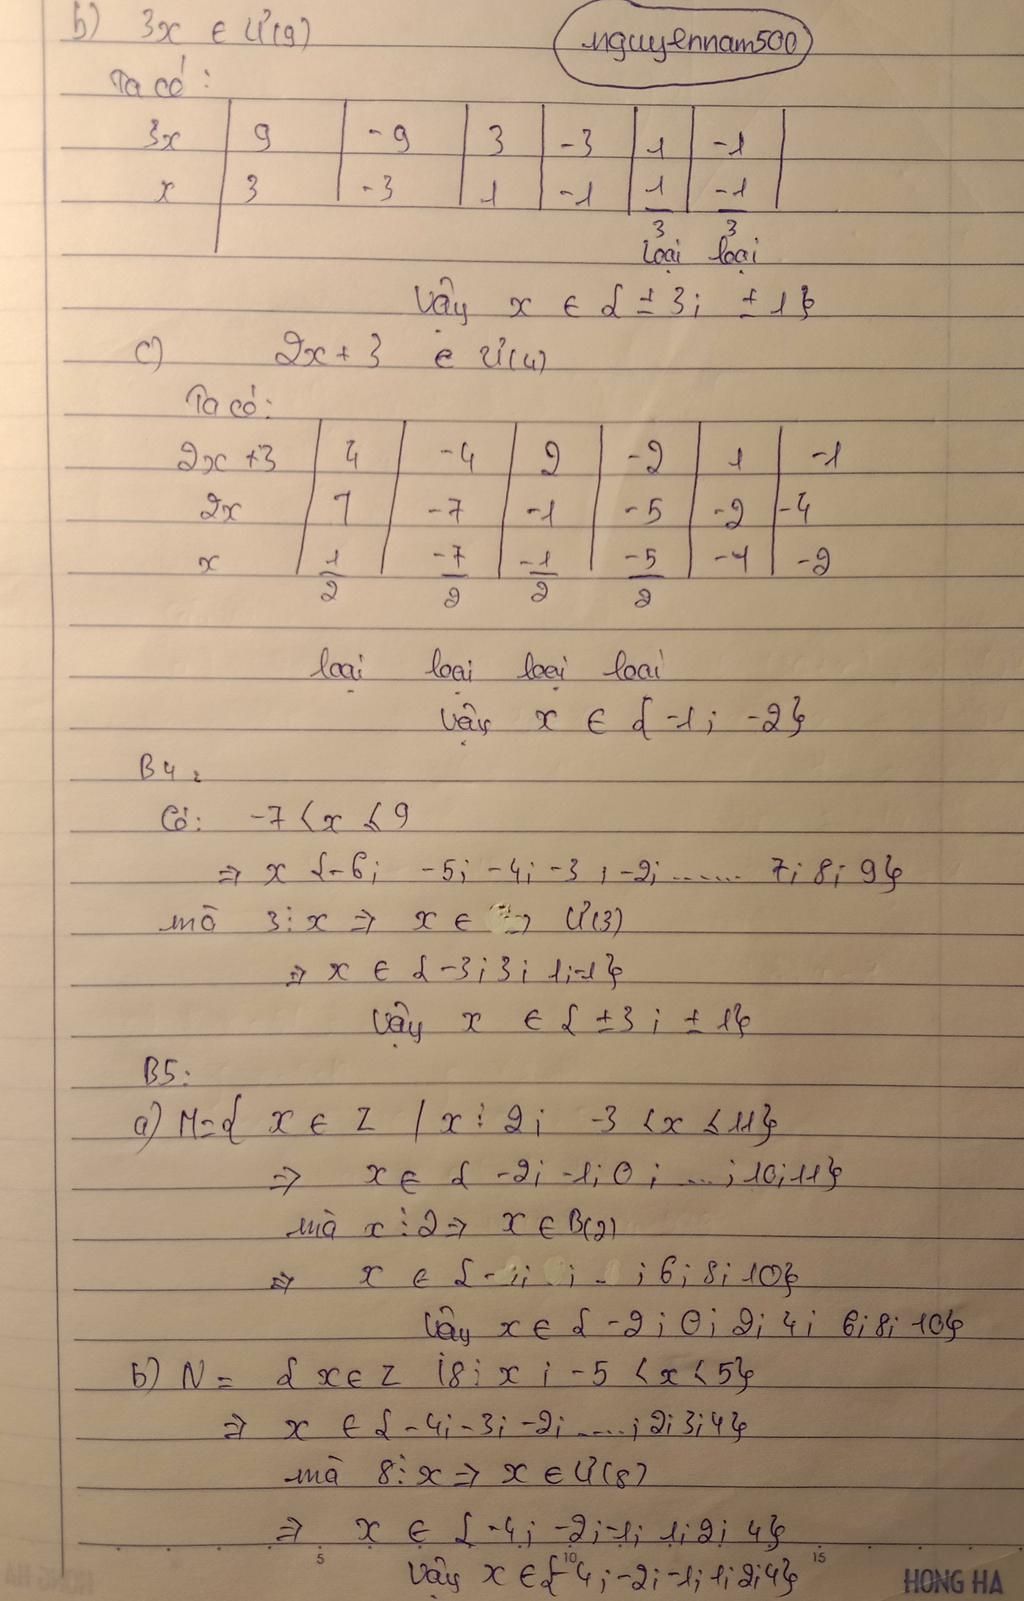 b) 3x ∈ Ư(9)
nguyennam500
Ta có:
3x 9 -9 3 -3 1 -1
x 3 -3 1 -1 1/3 -1/3
loại loại
Vậy x ∈ { ±3; ±1}
c) 2x + 3 ∈ Ư(4)
Ta có:
2x +3 4 -4 2 -2 1 -1
2x 1 -7 -1 -5 -2 -4
x 1/2 -7/2 -1/2 -5/2 -1 -2
loại loại loại loại
Vậy x ∈ {-1; -2}
B4:
Có: -7 < x ≤ 9
⇒ x {-6; -5; -4; -3; -2; ...... 7; 8; 9}
mà 3⋮x ⇒ x ∈ Ư(3)
⇒ x ∈ {-3; 3; 1; -1}
Vậy x ∈ { ±3; ±1}
B5:
a) M={ x ∈ Z / x ⋮ 2; -3 < x ≤ 11}
⇒ x ∈ { -2; -1; 0; ...; 10; 11}
mà x ⋮ 2 ⇒ x ∈ B(2)
⇒ x ∈ { ; 6; 8; 10}
Vậy x ∈ { -2; 0; 2; 4; 6; 8; 10}
b) N = { x ∈ Z | 8 ⋮ x ; -5 < x < 5}
⇒ x ∈ {-4; -3; -2; ....; 2; 3; 4}
mà 8 ⋮ x ⇒ x ∈ Ư(8)
⇒ x ∈ {-4; -2; -1; 1; 2; 4}
Vậy x ∈ {-4; -2; -1; 1; 2; 4}
5 10 15
HONG HA